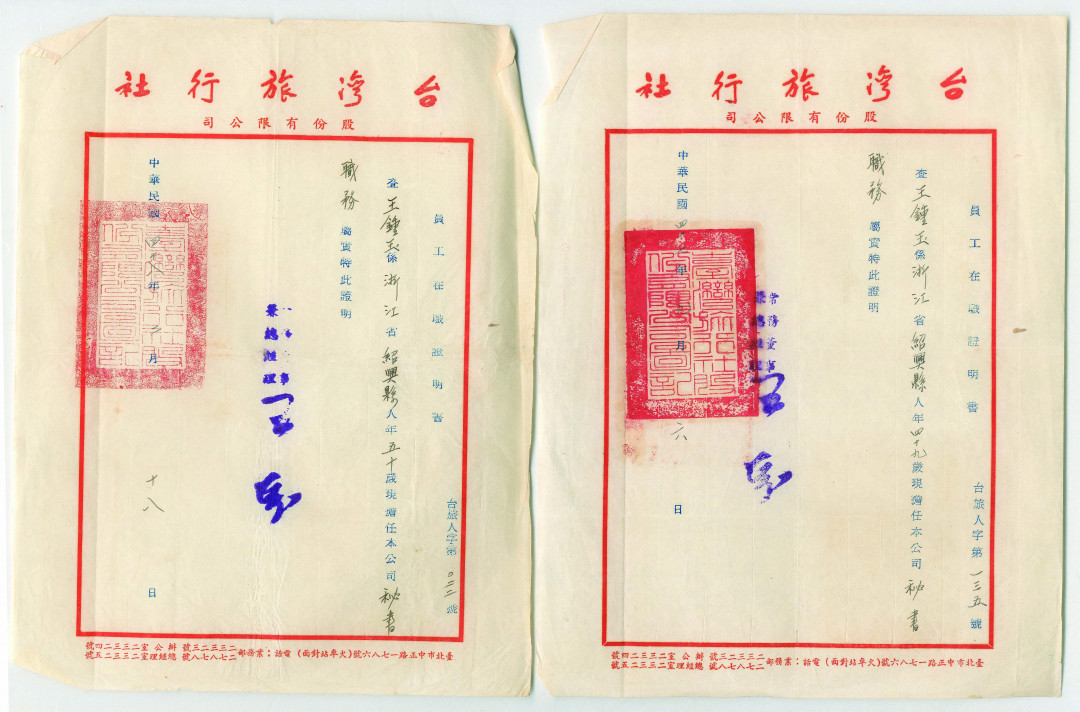 台灣旅行社
股份有限公司
員工在職證明書
台旅人字第〇二二號
查王鍾玉係浙江省紹興縣人年五十歲現擔任本公司秘書
職務屬實特此證明
兼總經理
中華民國四十年二月十八日
臺北市中正路一七八六號(火車站對面)電話:業務部
二二三二三號 辦公室二三三二四號
二七八七八號 總經理室二三三二五號
台灣旅行社
股份有限公司
員工在職證明書
台旅人字第一三五號
查王鍾玉係浙江省紹興縣人年四十九歲現擔任本公司秘書
職務屬實特此證明
常務董事
兼總經理
中華民國四年月六日
臺北市中正路一七八六號(火車站對面)電話:業務部
二二三二三號 辦公室二三三二四號
二七八七八號 總經理室二三三二五號